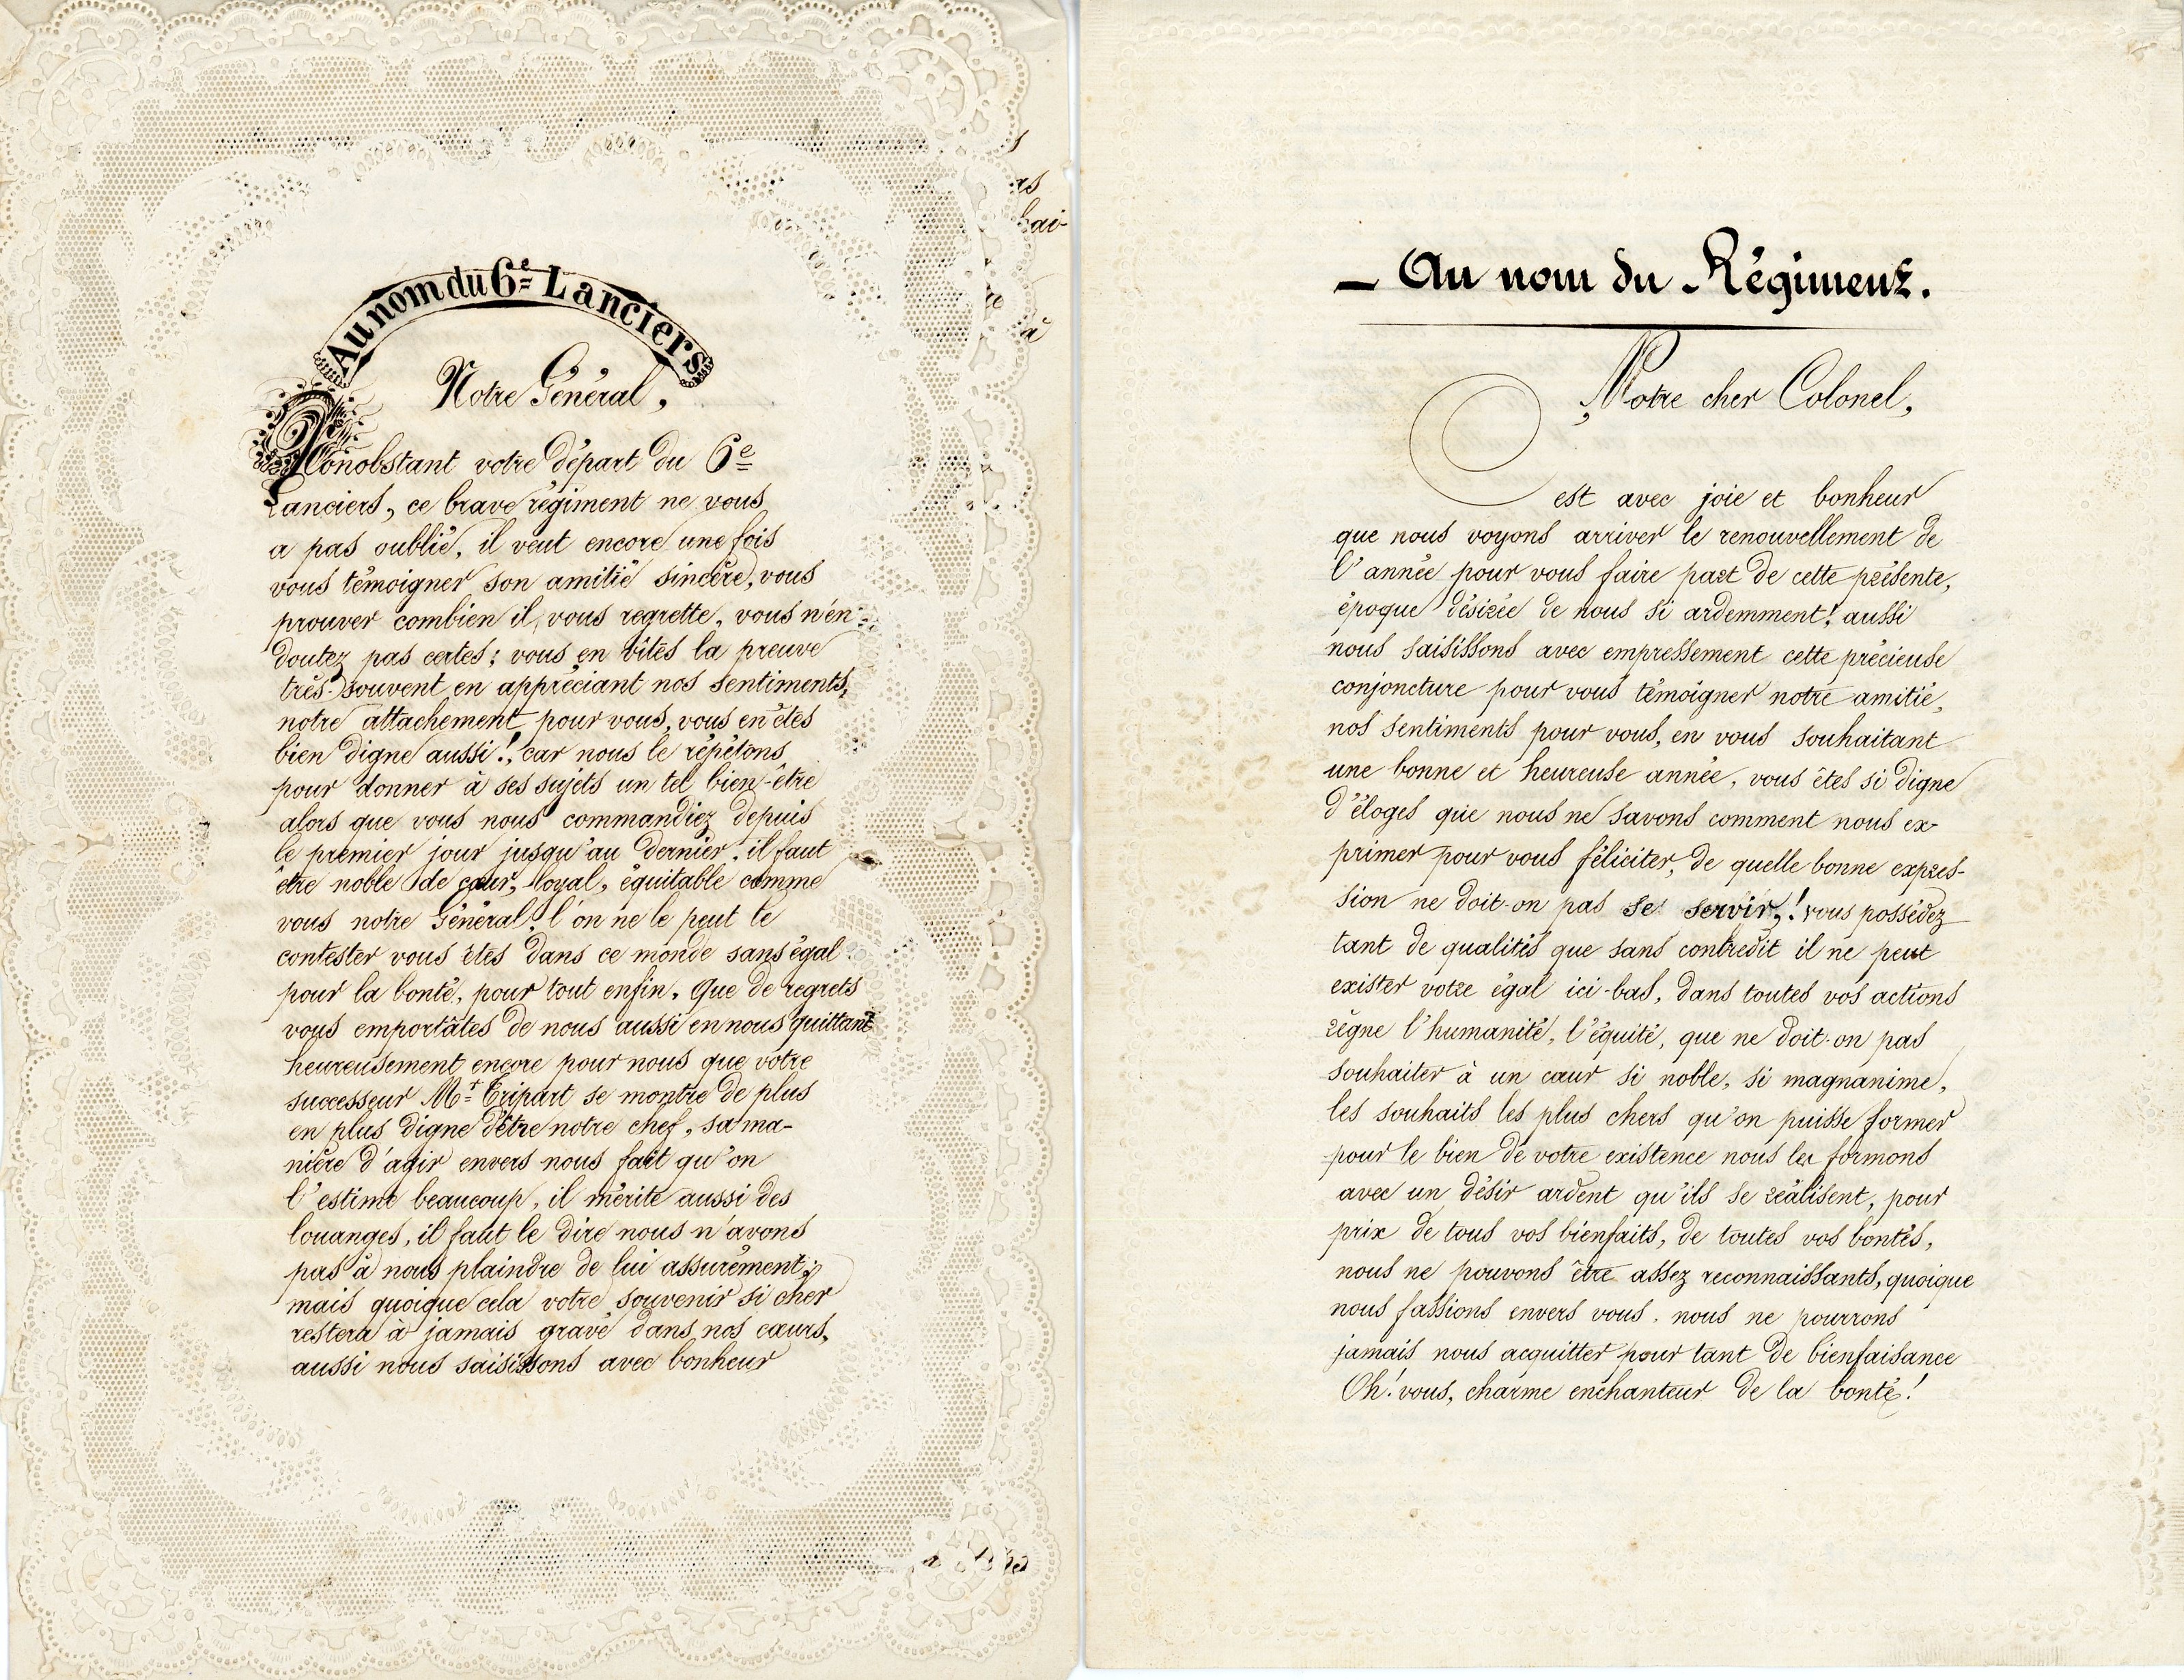 Au nom du 6e Lanciers
Notre Général,
Nonobstant votre départ du 6e
Lanciers, ce brave régiment ne vous
a pas oublié, il veut encore une fois
vous témoigner son amitié sincère, vous
prouver combien il, vous regrette, vous n'en
doutez pas certes; vous en vîtes la preuve
très-souvent en appréciant nos sentiments,
notre attachement pour vous, vous en êtes
bien digne aussi!, car nous le répétons
pour donner à ses sujets un tel bien-être
alors que vous nous commandiez depuis
le premier jour jusqu'au dernier, il faut
être noble de cœur, loyal, équitable comme
vous notre Général! l'on ne le peut le
contester vous êtes dans ce monde sans égal
pour la bonté, pour tout enfin. Que de regrets
vous emportâtes de nous aussi en nous quittant
heureusement encore pour nous que votre
successeur Mr Tripart se montre de plus
en plus digne d'être notre chef, sa ma-
nière d'agir envers nous fait qu'on
l'estime beaucoup, il mérite aussi des
louanges, il faut le dire nous n'avons
pas à nous plaindre de lui assurément;
mais quoique cela votre souvenir si cher
restera à jamais gravé dans nos cœurs,
aussi nous saisissons avec bonheur
s
rs
hai-
à
— Au nom du Régiment.
Notre cher Colonel,
C'est avec joie et bonheur
que nous voyons arriver le renouvellement de
l'année pour vous faire part de cette présente,
époque désirée de nous si ardemment! aussi
nous saisissons avec empressement cette précieuse
conjoncture pour vous témoigner notre amitié,
nos sentiments pour vous, en vous souhaitant
une bonne et heureuse année, vous êtes si digne
d'éloges que nous ne savons comment nous ex-
primer pour vous féliciter, de quelle bonne expres-
sion ne doit-on pas se servir,! vous possédez
tant de qualités que sans contredit il ne peut
exister votre égal ici-bas, dans toutes vos actions
règne l'humanité, l'équité, que ne doit-on pas
souhaiter à un cœur si noble, si magnanime,
les souhaits les plus chers qu'on puisse former
pour le bien de votre existence nous les formons
avec un désir ardent qu'ils se réalisent, pour
prix de tous vos bienfaits, de toutes vos bontés,
nous ne pouvons être assez reconnaissants, quoique
nous fassions envers vous, nous ne pourrons
jamais nous acquitter pour tant de bienfaisance
Oh! vous, charme enchanteur de la bonté!